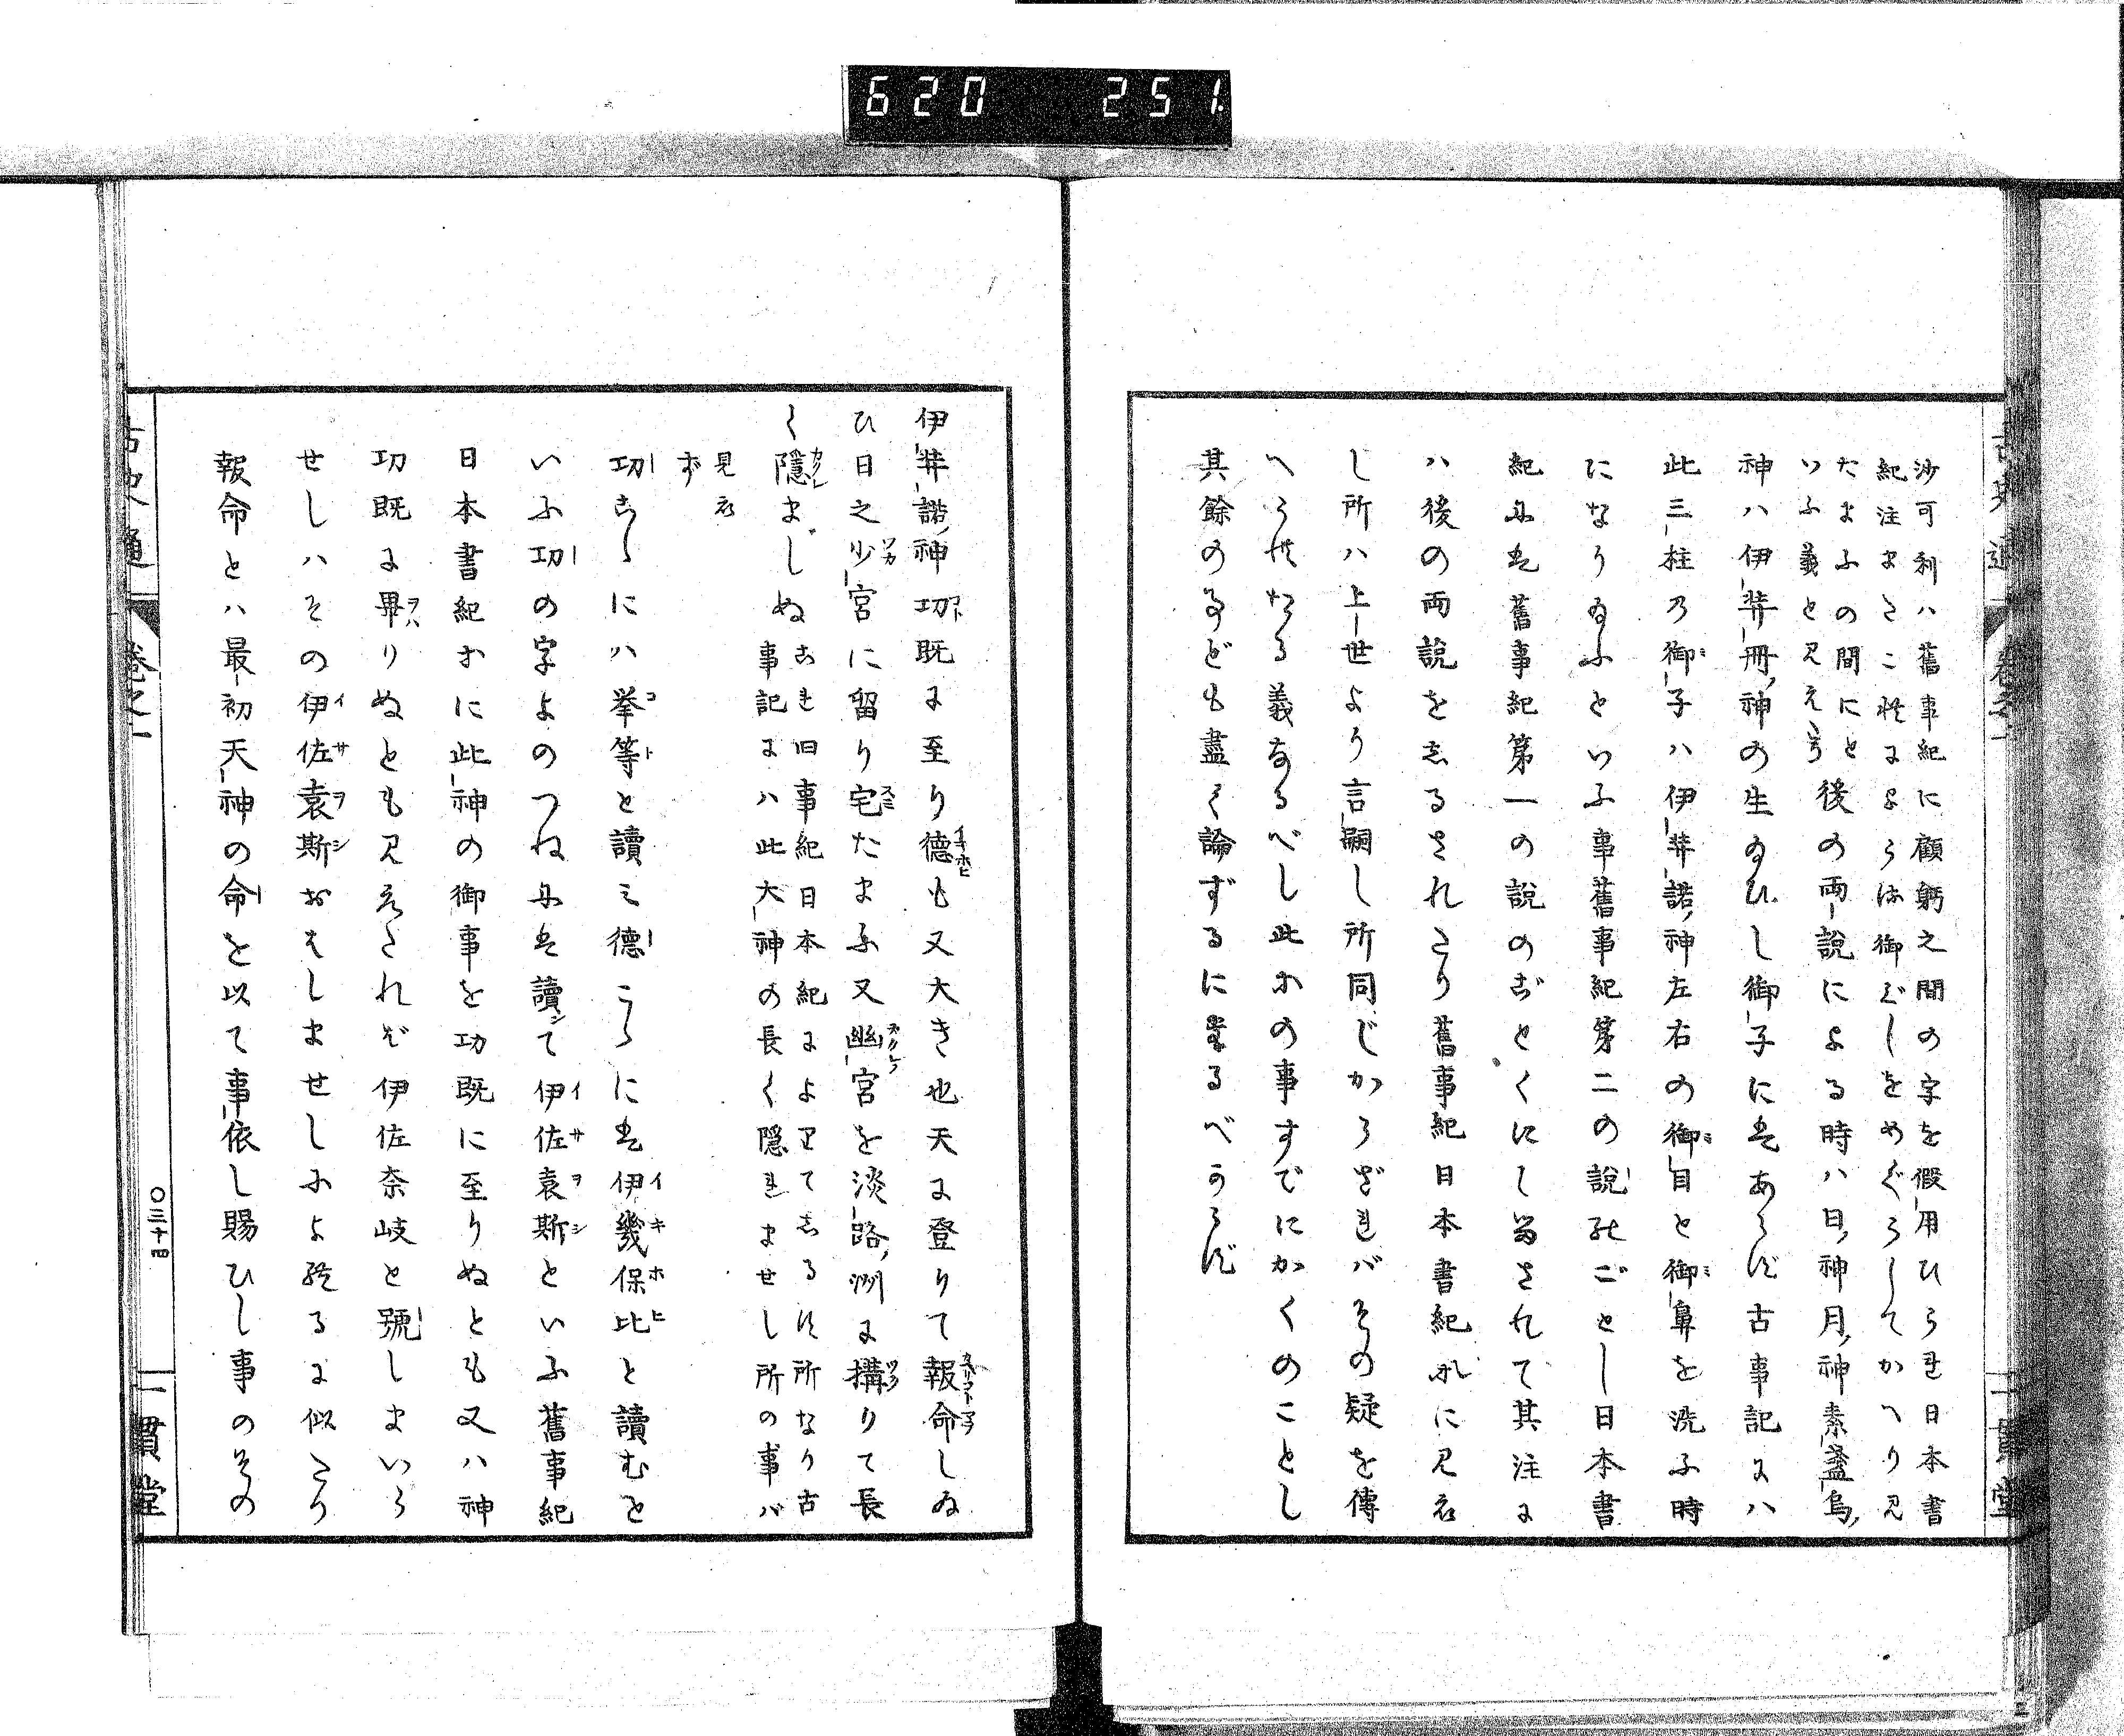 620 251
沙可利ハ舊事紀に顧眄之間の字を假用ひられ日本書
紀注まさこれによらは御ぐしをめぐらしてかへり見
たまふの間にと
いふ義と見えたり
後の両説による時ハ日神月神素盞烏
神ハ伊弉冊神の生ゐひし御子にはあらず古事記にハ
此三柱乃御子ハ伊弉諾神左右の御目と御鼻を洗ふ時
になりゐふといふ事舊事紀第二の說のごとし日本書
紀には舊事紀第一の說のごとくにしるされて其注に
ハ後の両說をしるされたり舊事紀日本書紀并に見え
し所ハ上世より言嗣し所同じからざればその疑を傳
へられたる義なるべし此等の事すでにかくのことし
其餘の事ども盡く論ずるに堪るべからず
伊弉諾神功既に至り徳も又大き也天に登りて報命しゐ
ひ日之少宮に留り宅たまふ又幽宮を淡路洲に構りて長
く隠ましぬ
これ旧事紀日本紀によりてしるす所なり古
事記にハ此大神の長く隠れませし所の事ハ
見え
ず
功こゝにハ挙等と讀ミ徳こゝには伊幾保比と讀むと
いふ功の字よのつねには讀て伊佐袁斯といふ舊事紀
日本書紀等に此神の御事を功既に至りぬとも又ハ神
功既に畢りぬとも見えたれば伊佐奈岐と號しまいら
せしハその伊佐袁斯おはしませしによれるに似たり
報命とハ最初天神の命を以て事依し賜ひし事のその
古史通 巻之一 〇三十四 一貫堂